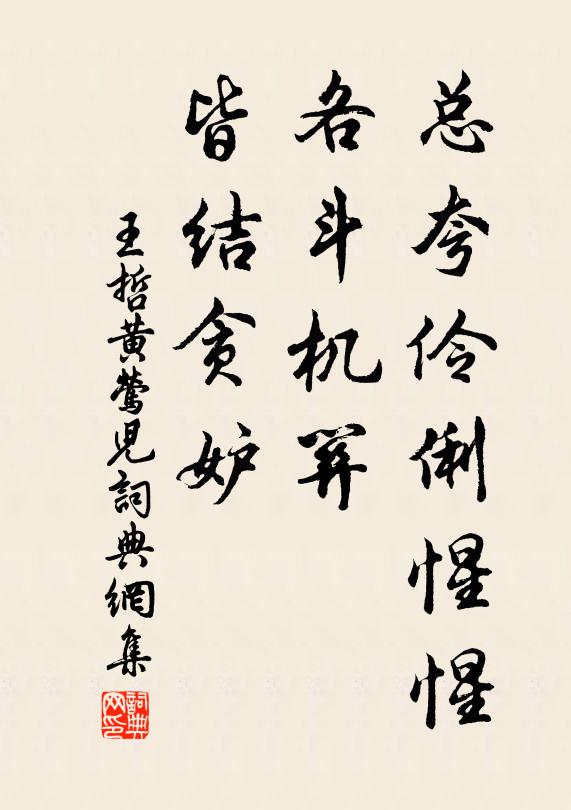 总夸伶俐惺惺
各斗机筭
皆结贪妒
王哲黄莺儿詞典網集
詞典网印